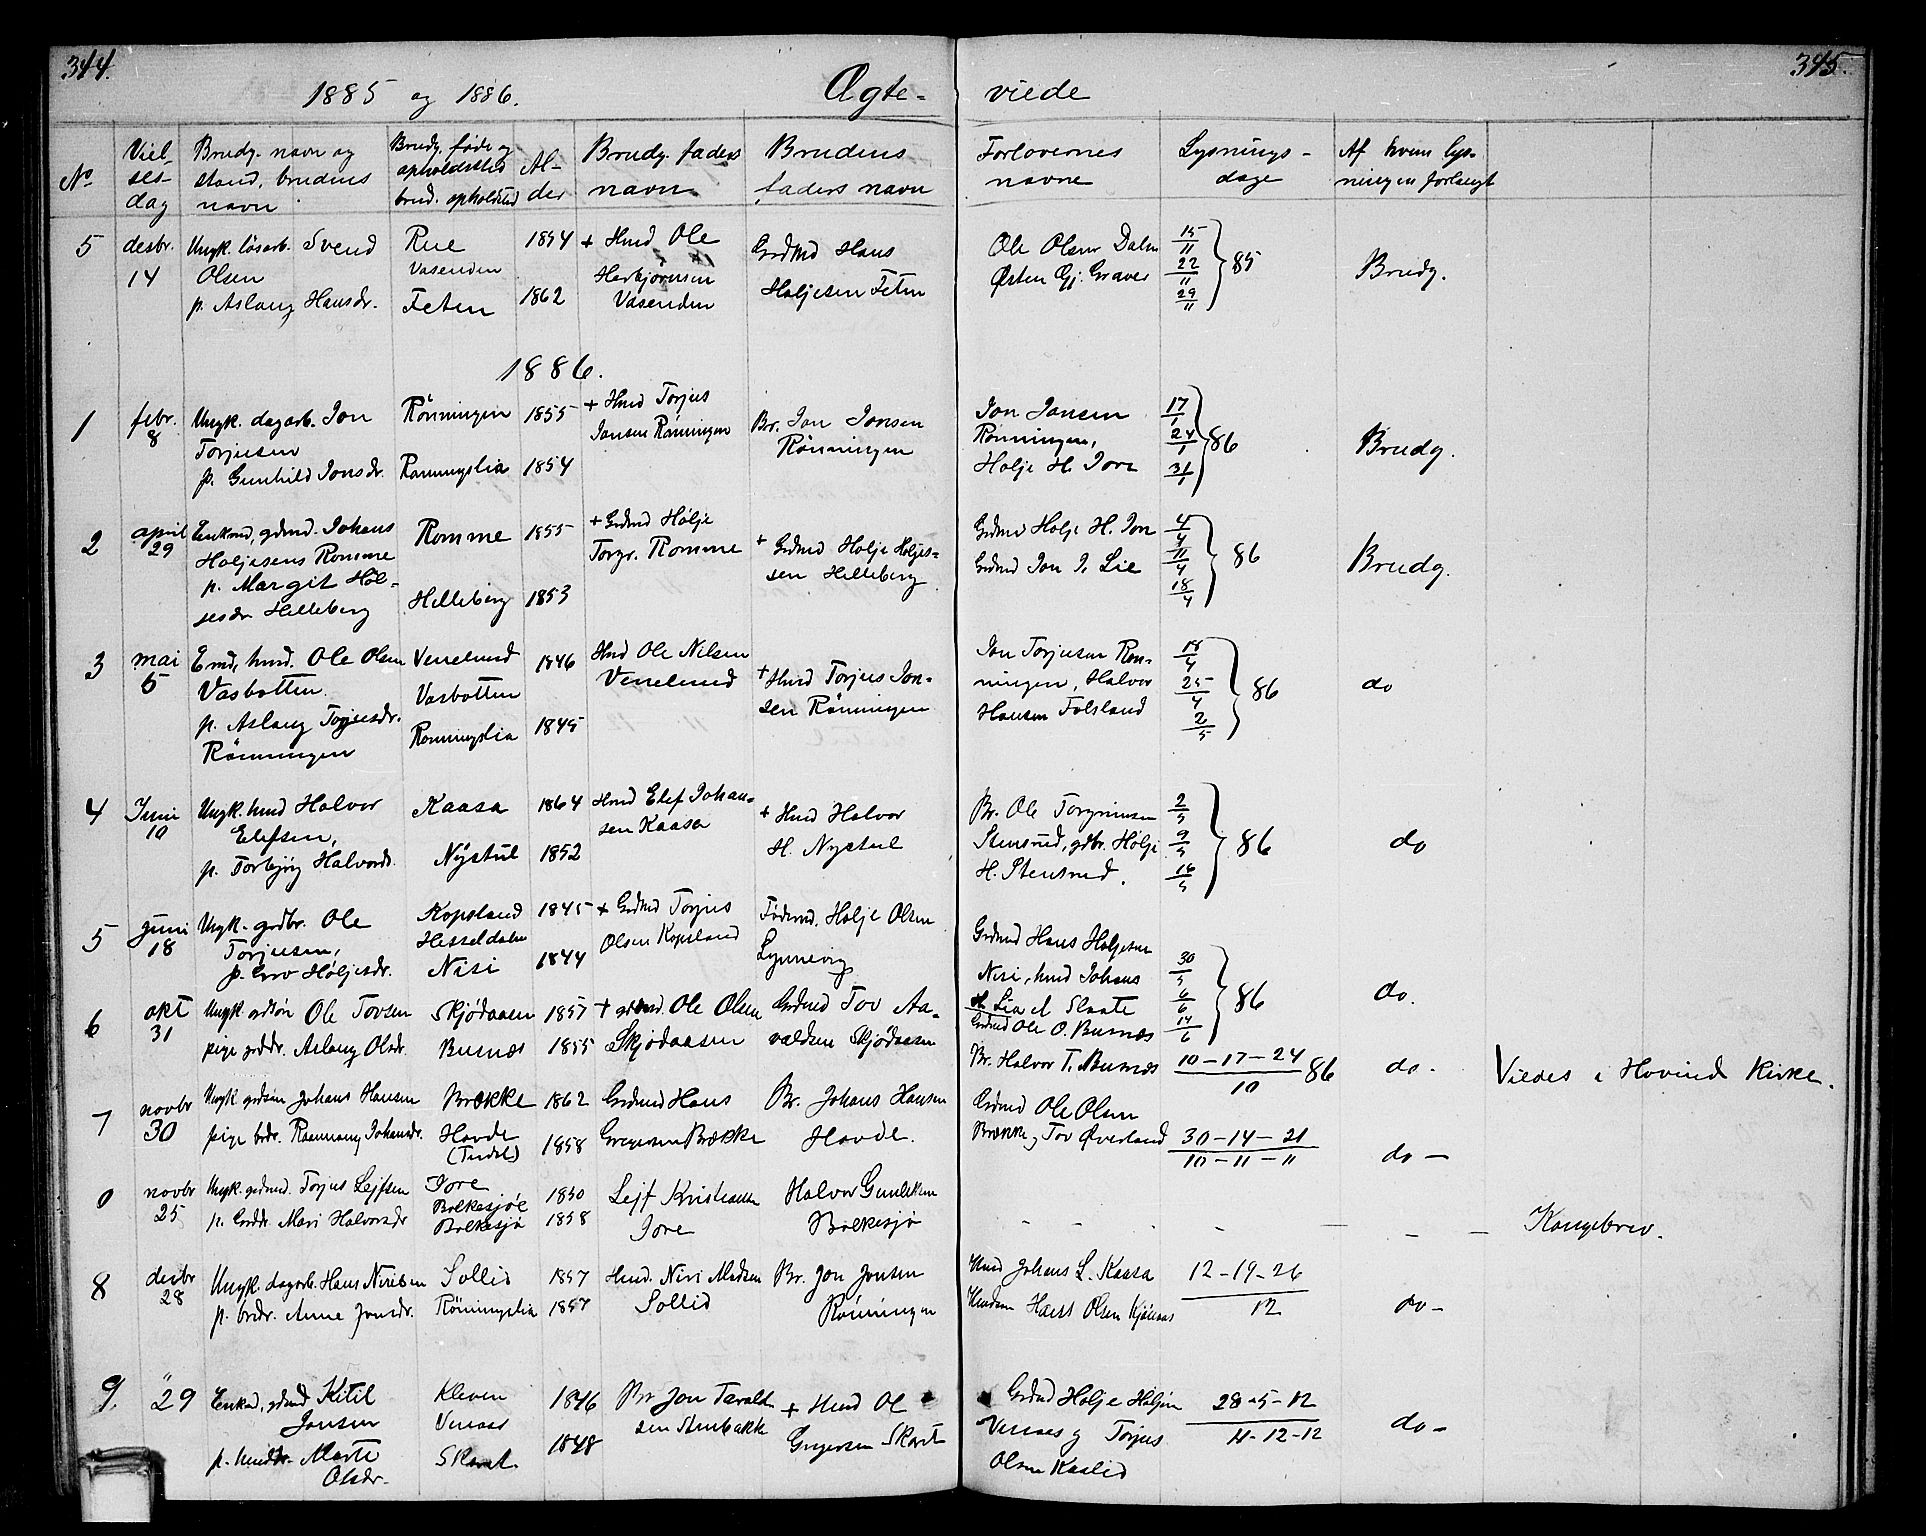 344.
345.
1885 og 1886.
Ægte- viede
No
Viel-
ses-
dag
Brudg. navn og
stand, brudens
navn
Brudg. føde og
opholdssted
brud. opholdsted
Al-
der
Brudg. faders
navn
Brudens
faders navn
Forlovernes
navne
Lysnings-
dage
Af hvem lys-
ningen forlangt
5
desbr.
14
Ungk. løsarb. Svend
Olsen
p. Aslaug Hansdr.
Rue
Vasenden
Feten
1854
1862
+ Hmd Ole
Herbjørnsen
Vasenden
Grdmd Hans
Holjesen Feten
Ole Olsen Dalen
Østen Gj. Graver
15/11
22/11
29/11
85
Brudg.
1886.
1
febr.
8
Ungk. dagarb. Jon
Torjusen
p. Gunhild Jonsdr.
Rönningen
Rönningslia
1855
1854
+ Hmd Torjus
Jonsen Rönningen
Br. Jon Jonsen
Rönningen
Jon Jansen
Rønningen,
Holje H. Jore
17/1
24/1
31/1
86
Brudg.
2
april
29
Enkmd, grdmd. Johans
Holjesens Romme
p. Margit Hol-
jesdr Helleberg
Romme
Helleberg
1855
1853
+ Grdmd Holje
Torgr. Romme
+ Grdmd Holje Holjes-
sen Helleberg
Grdmd Holje H. Jon
Grdmd Jon J. Lie
4/4
11/4
18/4
86
Brudg.
3
mai
5
Emd, hmd. Ole Olsen
Vasbotten.
p. Aslaug Torjusdr.
Rönningen
Venelund
Vasbotten
Ronningslia
1846
1845
Hmd Ole Nilsen
Venelund
+ Hmd Torjus Jon-
sen Rönningen
Jon Torjusen Ron-
ningen, Halvor
Hansen Folsland
18/4
25/4
2/5
86
do
4
Juni
10
Ungk. hmd Halvor
Elefsen,
p. Torbjörg Halvordr.
Kaasa
Nystul
1864
1852
Hmd Elef Johan-
sen Kaasa
+ Hmd Halvor
H. Nystul
Br. Ole Torgrimsen
Stensrud, gdbr. Holje
H. Stensrud.
2/5
9/5
16/5
86
do
5
juni
18
Ungk. grdbr. Ole
Torjusen,
p. Gro Höljesdr.
Kopsland
Hesseldalen
Nisi
1845
1844
+ Grdmd Torjus
Olsen Kopsland
Föderd. Holje Olsen
Lynnevig
Grdmd Hans Holjesen
Nisi, hmd Johans
Lia el Slaate
30/5
6/6
14/6
86
do.
6
okt
31
Ungk. grdsøn Ole Tovsen
pige grddr. Aslaug Olsdr.
Skjödaasen
Busnæs
1857
1855
+ grdmd Ole Olsen
Skjödaasen
Grdmd Tov Aa-
valdsen Skjödaasen
Grdmd Ole O. Busnæs
Br. Halvor T. Busnæs
10-17-24
10
86
do.
Viedes i Hovind Kirke.
7
novbr
30
Ungk. grdsøn Johans Hansen
pige brdr. Rannaug Johansdr.
Brække
Hovde
(Tudal)
1862
1858
Grdmd Hans
Gregersen Brække
Br. Johans Hansen
Hovde.
Grdmd Ole Olsen
Brække og Tov Øverland
30-14-21
10-11-11
do-
0
novbr
25
Ungk. grdmd. Torjus Lejfsen
p. Grddr. Mari Halvorsdr
Jore
Bolkesjöe
Bolkesjö
1850
1858
Lejf Kristiansen
Jore
Halvor Gunleksen
Bolkesjö
- - - - - - -
Kongebrev.
8
desbr
28
Ungk. dagarb. Hans Nirisen
p. brdr. Anne Jonsdr.
Sollid
Rönningslia
1857
1857
Hmd. Niri Madsen
Sollid
Br. Jon Jonsen
Rönningen
Hmd Johans L. Kaasa
Hmdsøn Hans Olsen Kjönaas
12-19-26
12
do-
9.
" 29
Enkmd, grdmd Kitil
Jonsen
p. hmddr. Marte
Olsdr.
Kleven
Venaas
Skaret.
1846
1848
Br. Jon Tarald-
sen
+ Hmd Ole
Gregersen Skaret
Grdmd Holje Holjesen
Venaas og Torjus
Olsen Kaslid
28-5-12
11-12-12
do-